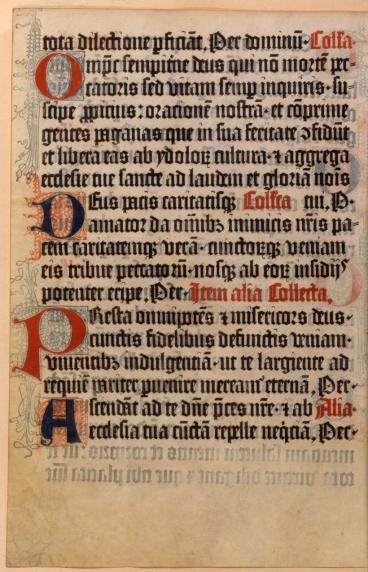 tota dilectione ꝑficiāt. Per dominū. Collā.
Omp̄c sempit̄ne deus qui nō mortē pc-
catoris sed vitam semp inquiris. su
scipe ꝓpicius: oracionē nostrā. et cōprime
gentes paganas que in sua feritate ↄfidūt
et libera eas ab ydoloꝝ cultura. ⁊ aggrega
ecclesie tue sancte ad laudem et gloriā nois
Deus pacis caritatisqꝫ Collcta tui. P.
amator da oīnibꝫ inimicis nr̄is pa-
cem caritatemqꝫ verā. cunctoꝛqꝫ veniam
eis tribue peccatorū. nosqꝫ ab eoꝝ insidijs
potenter eripe. Per. Item alia Collecta.
PResta omnipotēs ⁊ misericors deus.
cunctis fidelibus defunctis veniam.
viuentibꝫ indulgentiā. ut te largiente ad
requiē pariter puenire mereant᷑ eternā. Per.
Ascendāt ad te dn̄e p̄ces nr̄e. ⁊ ab Alia.
ecclesia tua cūctā repelle neq̄ciā. Per.